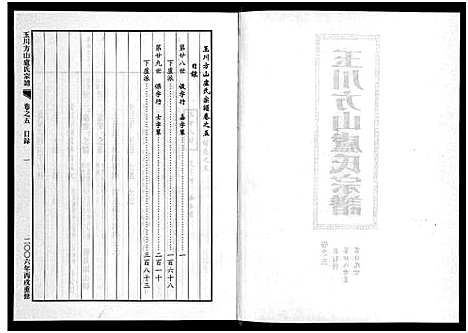 玉川方山盧氏宗譜
卷之五
玉川方山盧氏宗譜卷之五
目錄
第廿八世 儀字行 嘉字輩 一
下盧派 一百六十八
第廿九世 保字行 士字輩 二百一十
下盧派 三百八十三
玉川方山盧氏宗譜 卷之五 目録 一
二〇〇六年丙戌重修